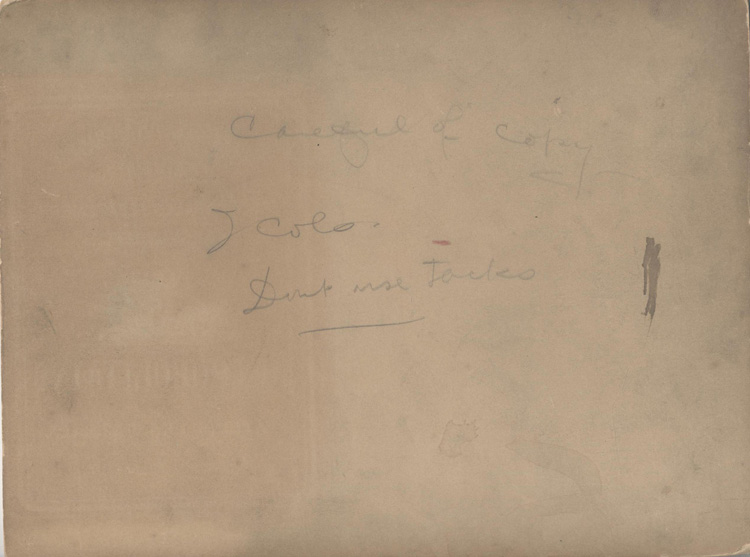 Careful of copy
2 cols.
Dont use tacks